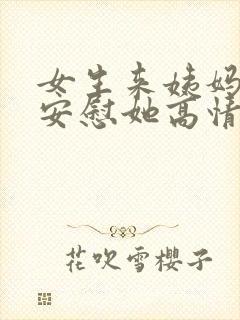 女生来姨妈
安慰她高情
花吹雪櫻子